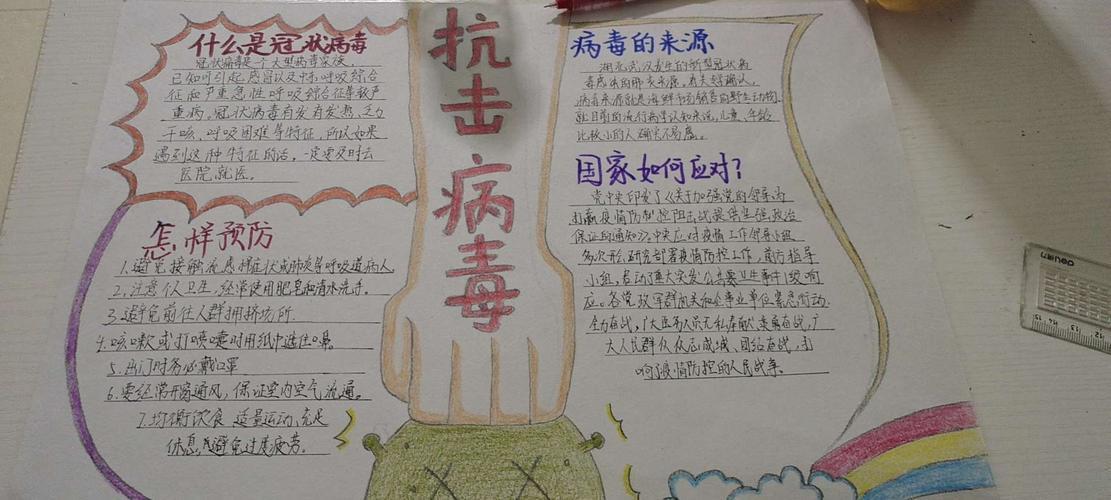 抗击病毒
什么是冠状病毒
冠状病毒是一个大型病毒家族，
已知可引起感冒以及中东呼吸综合
征和严重急性呼吸综合征等较严
重病。冠状病毒有发有发热、乏力
干咳、呼吸困难等特征，所以如果
遇到这种特征的话，一定要及时去
医院就医。
怎样预防
1.避免接触流感样症状或肺炎等呼吸道病人
2.注意个人卫生，经常使用肥皂和清水洗手。
3.避免前往人群拥挤场所.
4.咳嗽或打喷嚏时用纸巾遮住口鼻.
5.出门时务必戴口罩
6.要经常开窗通风，保证室内空气流通。
7.均衡饮食 适量运动,充足
休息,避免过度疲劳。
病毒的来源
湖北武汉发生的新型冠状病
毒感染的肺炎来源，有关经确认，
病毒来源就是海鲜市场销售的野生动物.
就目前的流行病学认知来说，儿童、年龄
比较小的人确实不易感。
国家如何应对？
党中央印发了《关于加强党的领导、为
打赢疫情防制控阻击战提供坚强政治
保证的通知》，中央应对疫情工作领导小组
多次，研究部署疫情防控工作，前方指导
小组，启动了重大突发公共卫生事件1级响
应。各党政军群机关和企事业单位紧急行动.
全力奋战，广大医务人员无私奉献、英勇奋战，广
大人民群众众志成城、团结奋战，打
响了疫情防控的人民战争.